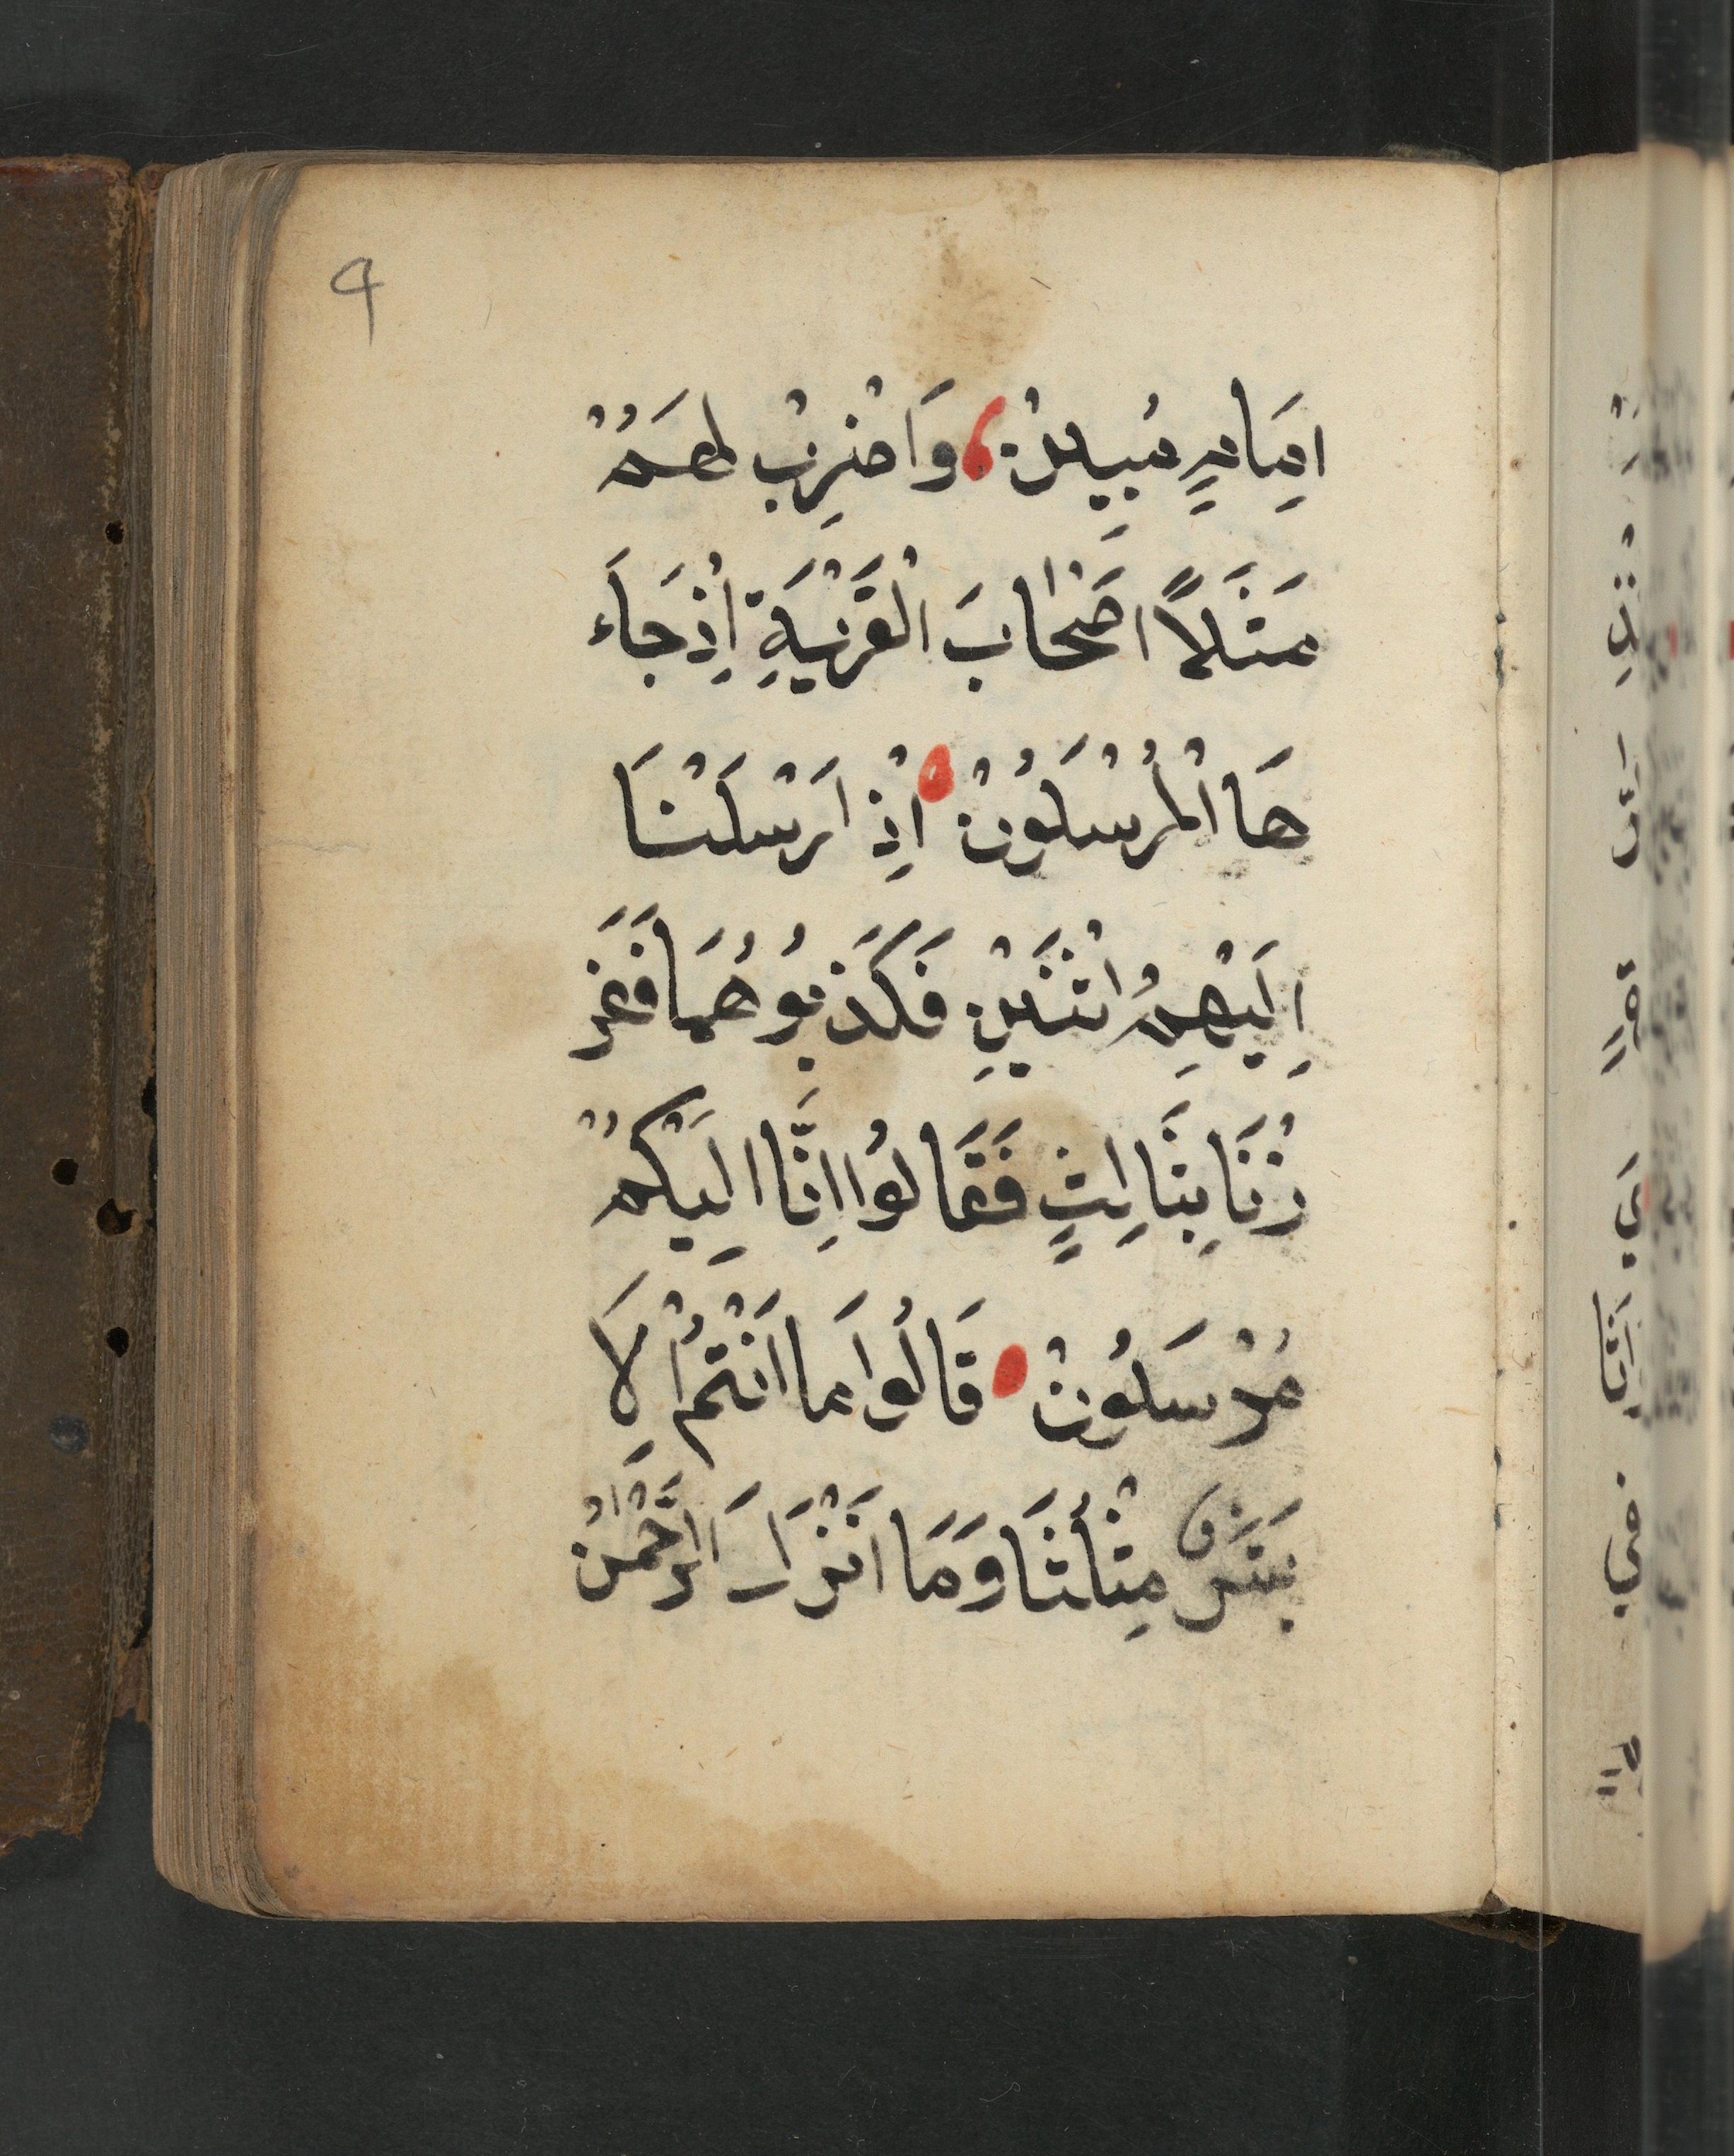 ٩
اِمَامٍ مُبِينْ وَاضْرِبْ لَهُمْ
مَثَلًا اَصْحَابَ الْقَرْيَةِ اِذْ جَاءَ
هَا الْمُرْسَلُونْ اِذْ اَرْسَلْنَا
اِلَيْهِمُ اثْنَيْنِ فَكَذَبُوهُمَا فَعَزَ
زْنَا بِثَالِثٍ فَقَالُوا اِنَّا اِلَيْكُمْ
مُرْسَلُونْ قَالُوا مَا اَنْتُمْ اِلَا
بَشَرٌ مِثْلُنَا وَمَا اَنْزَلَ الرَّحْمٰنُ